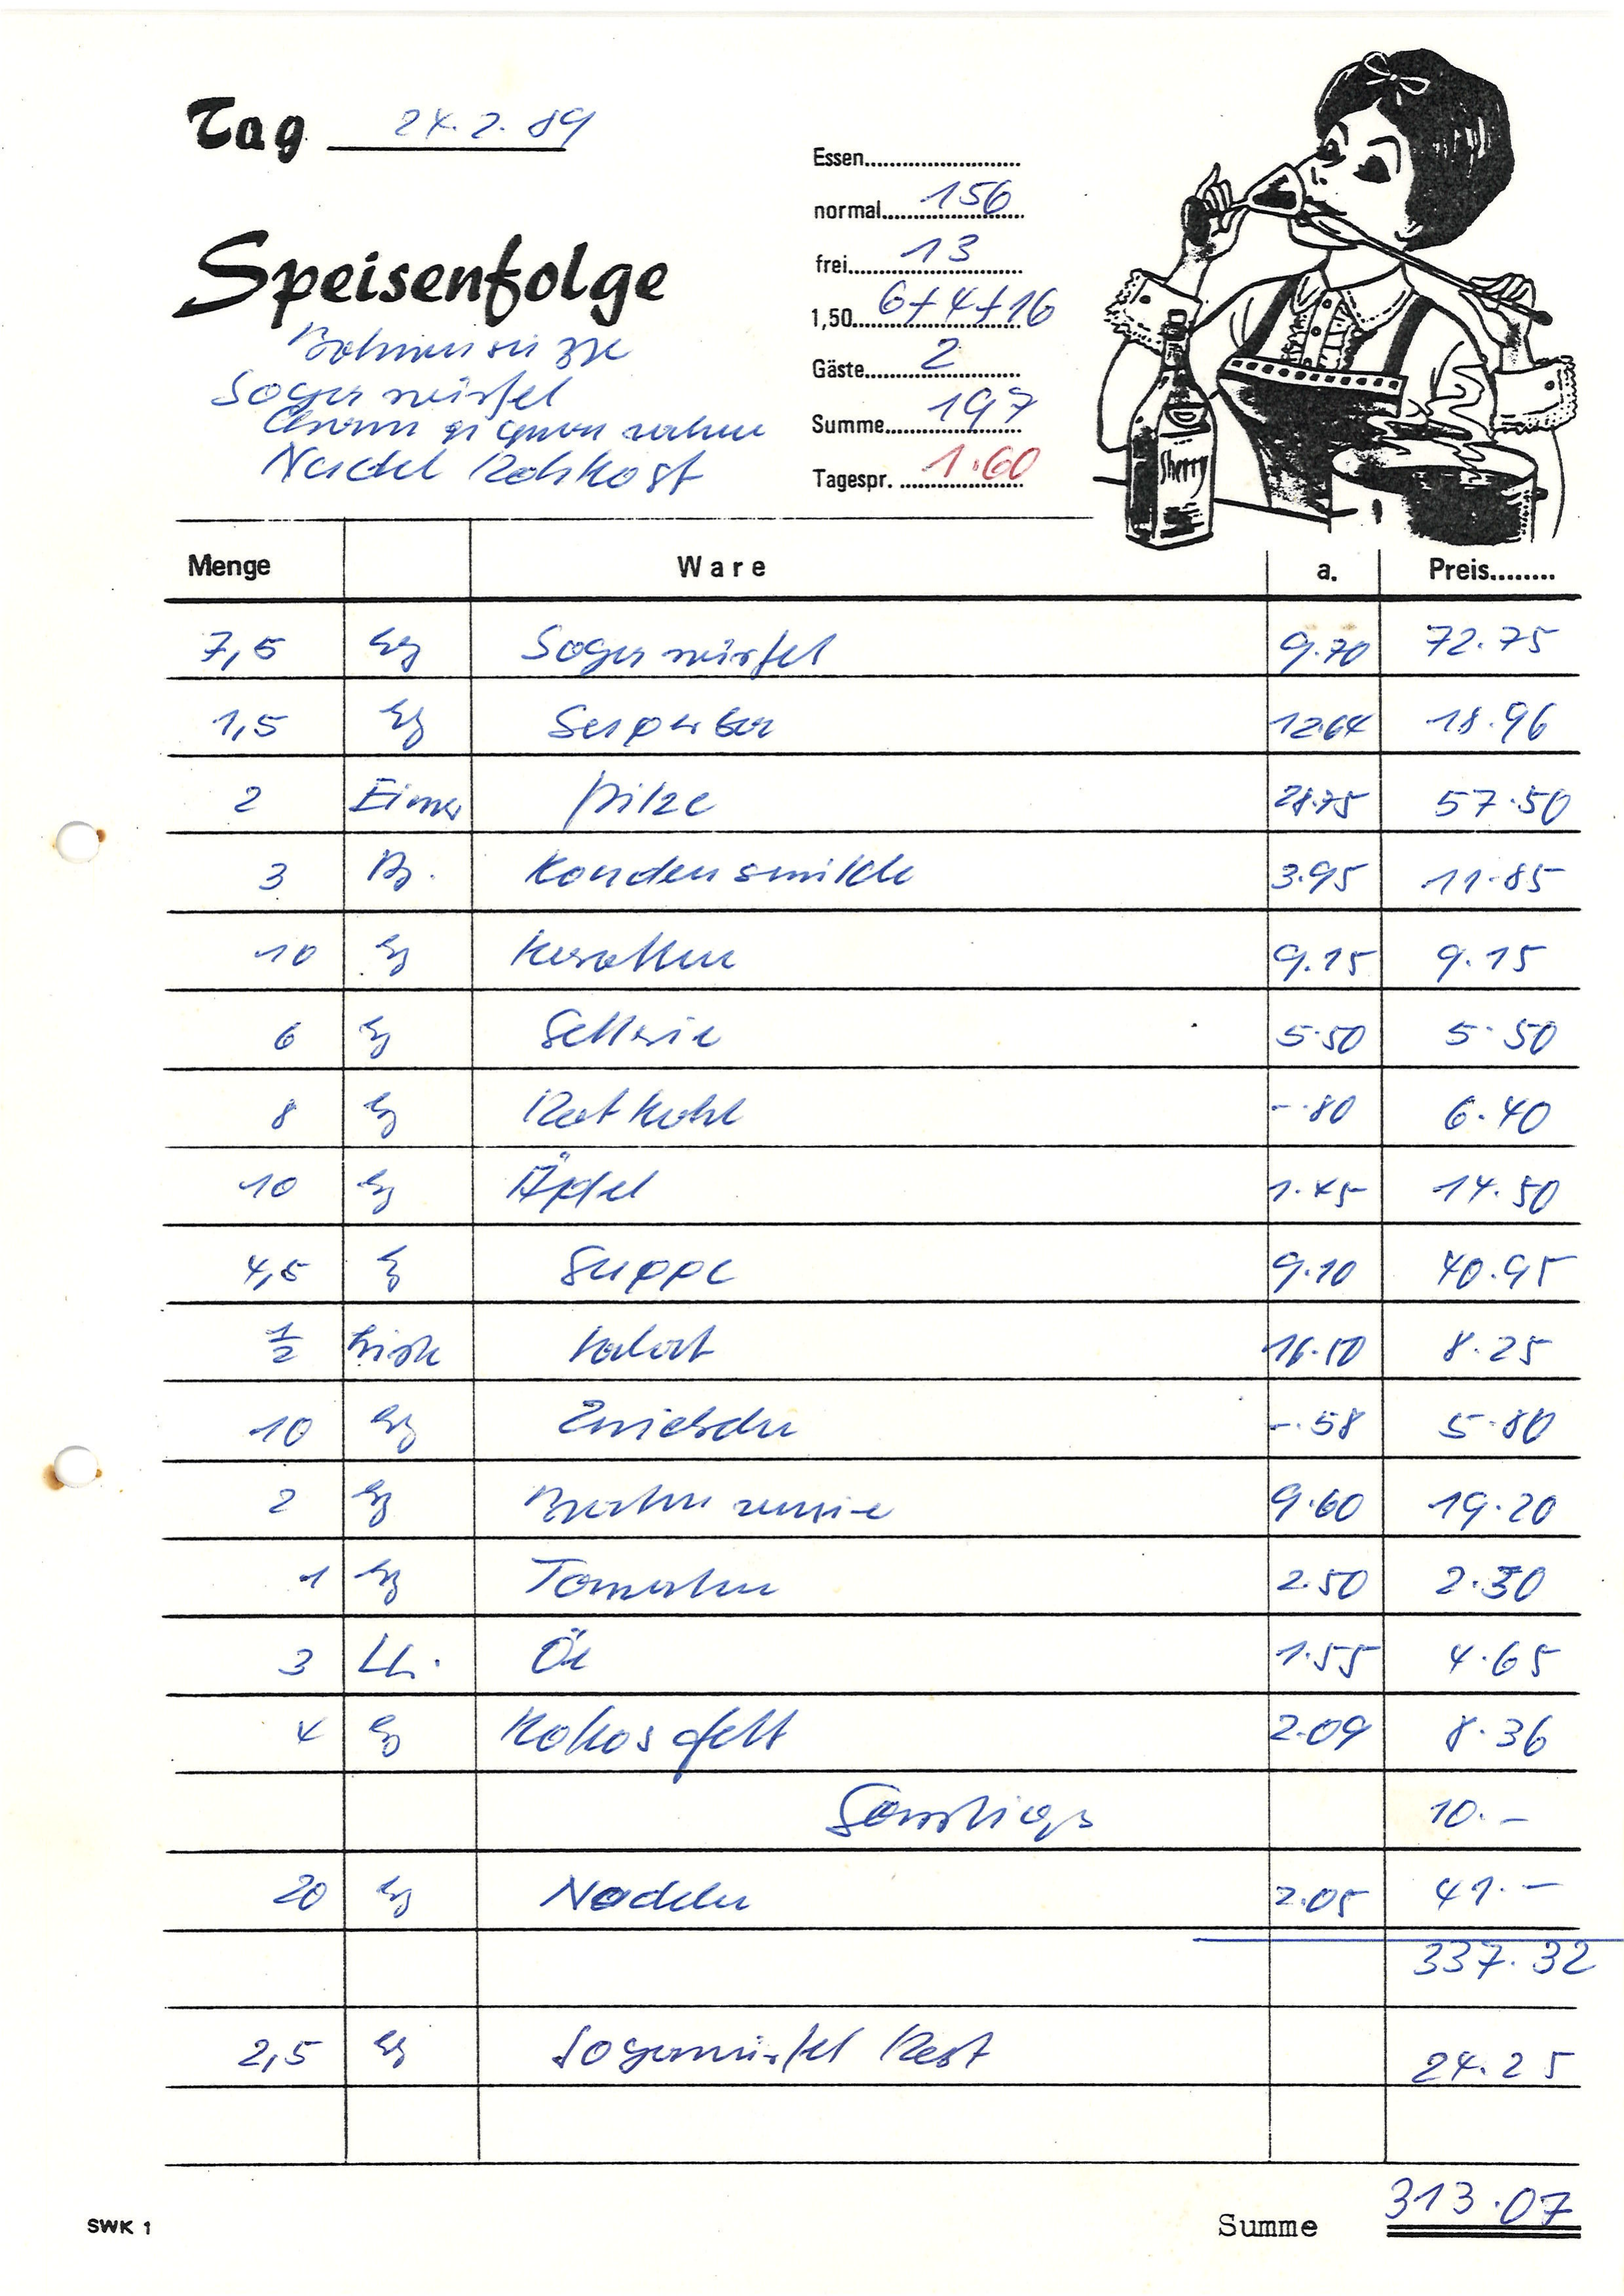 Tag 24.2.89
Essen
normal 156
frei 13
1,50 6+4+16
Gäste 2
Summe 197
Tagespr. 1.60
Speisenfolge
Bohnensuppe
Sojawürfel
Nudel Rohkost
Sherry
Menge Ware a. Preis
7,5 Kg Sojawürfel 9.70 72.75
1,5 Kg 12.64 18.96
2 Eimer Pilze 28.75 57.50
3 B. Kondensmilch 3.95 11.85
10 Kg Karotten 9.15 9.15
6 Kg Sellerie 5.50 5.50
8 Kg Rotkohl -.80 6.40
10 Kg Äpfel 1.45 14.50
4,5 Kg Suppe 9.10 40.95
1/2 Kiste Salat 16.50 8.25
10 Kg Zwiebeln -.58 5.80
2 Kg 9.60 19.20
1 Kg Tomaten 2.50 2.30
3 Lt. Öl 1.55 4.65
4 Kg Kokosfett 2.09 8.36
Sonstiges 10.-
20 Kg Nudeln 2.05 41.-
337.32
2,5 Kg Sojawürfel Rest 24.25
SWK 1 Summe 313.07